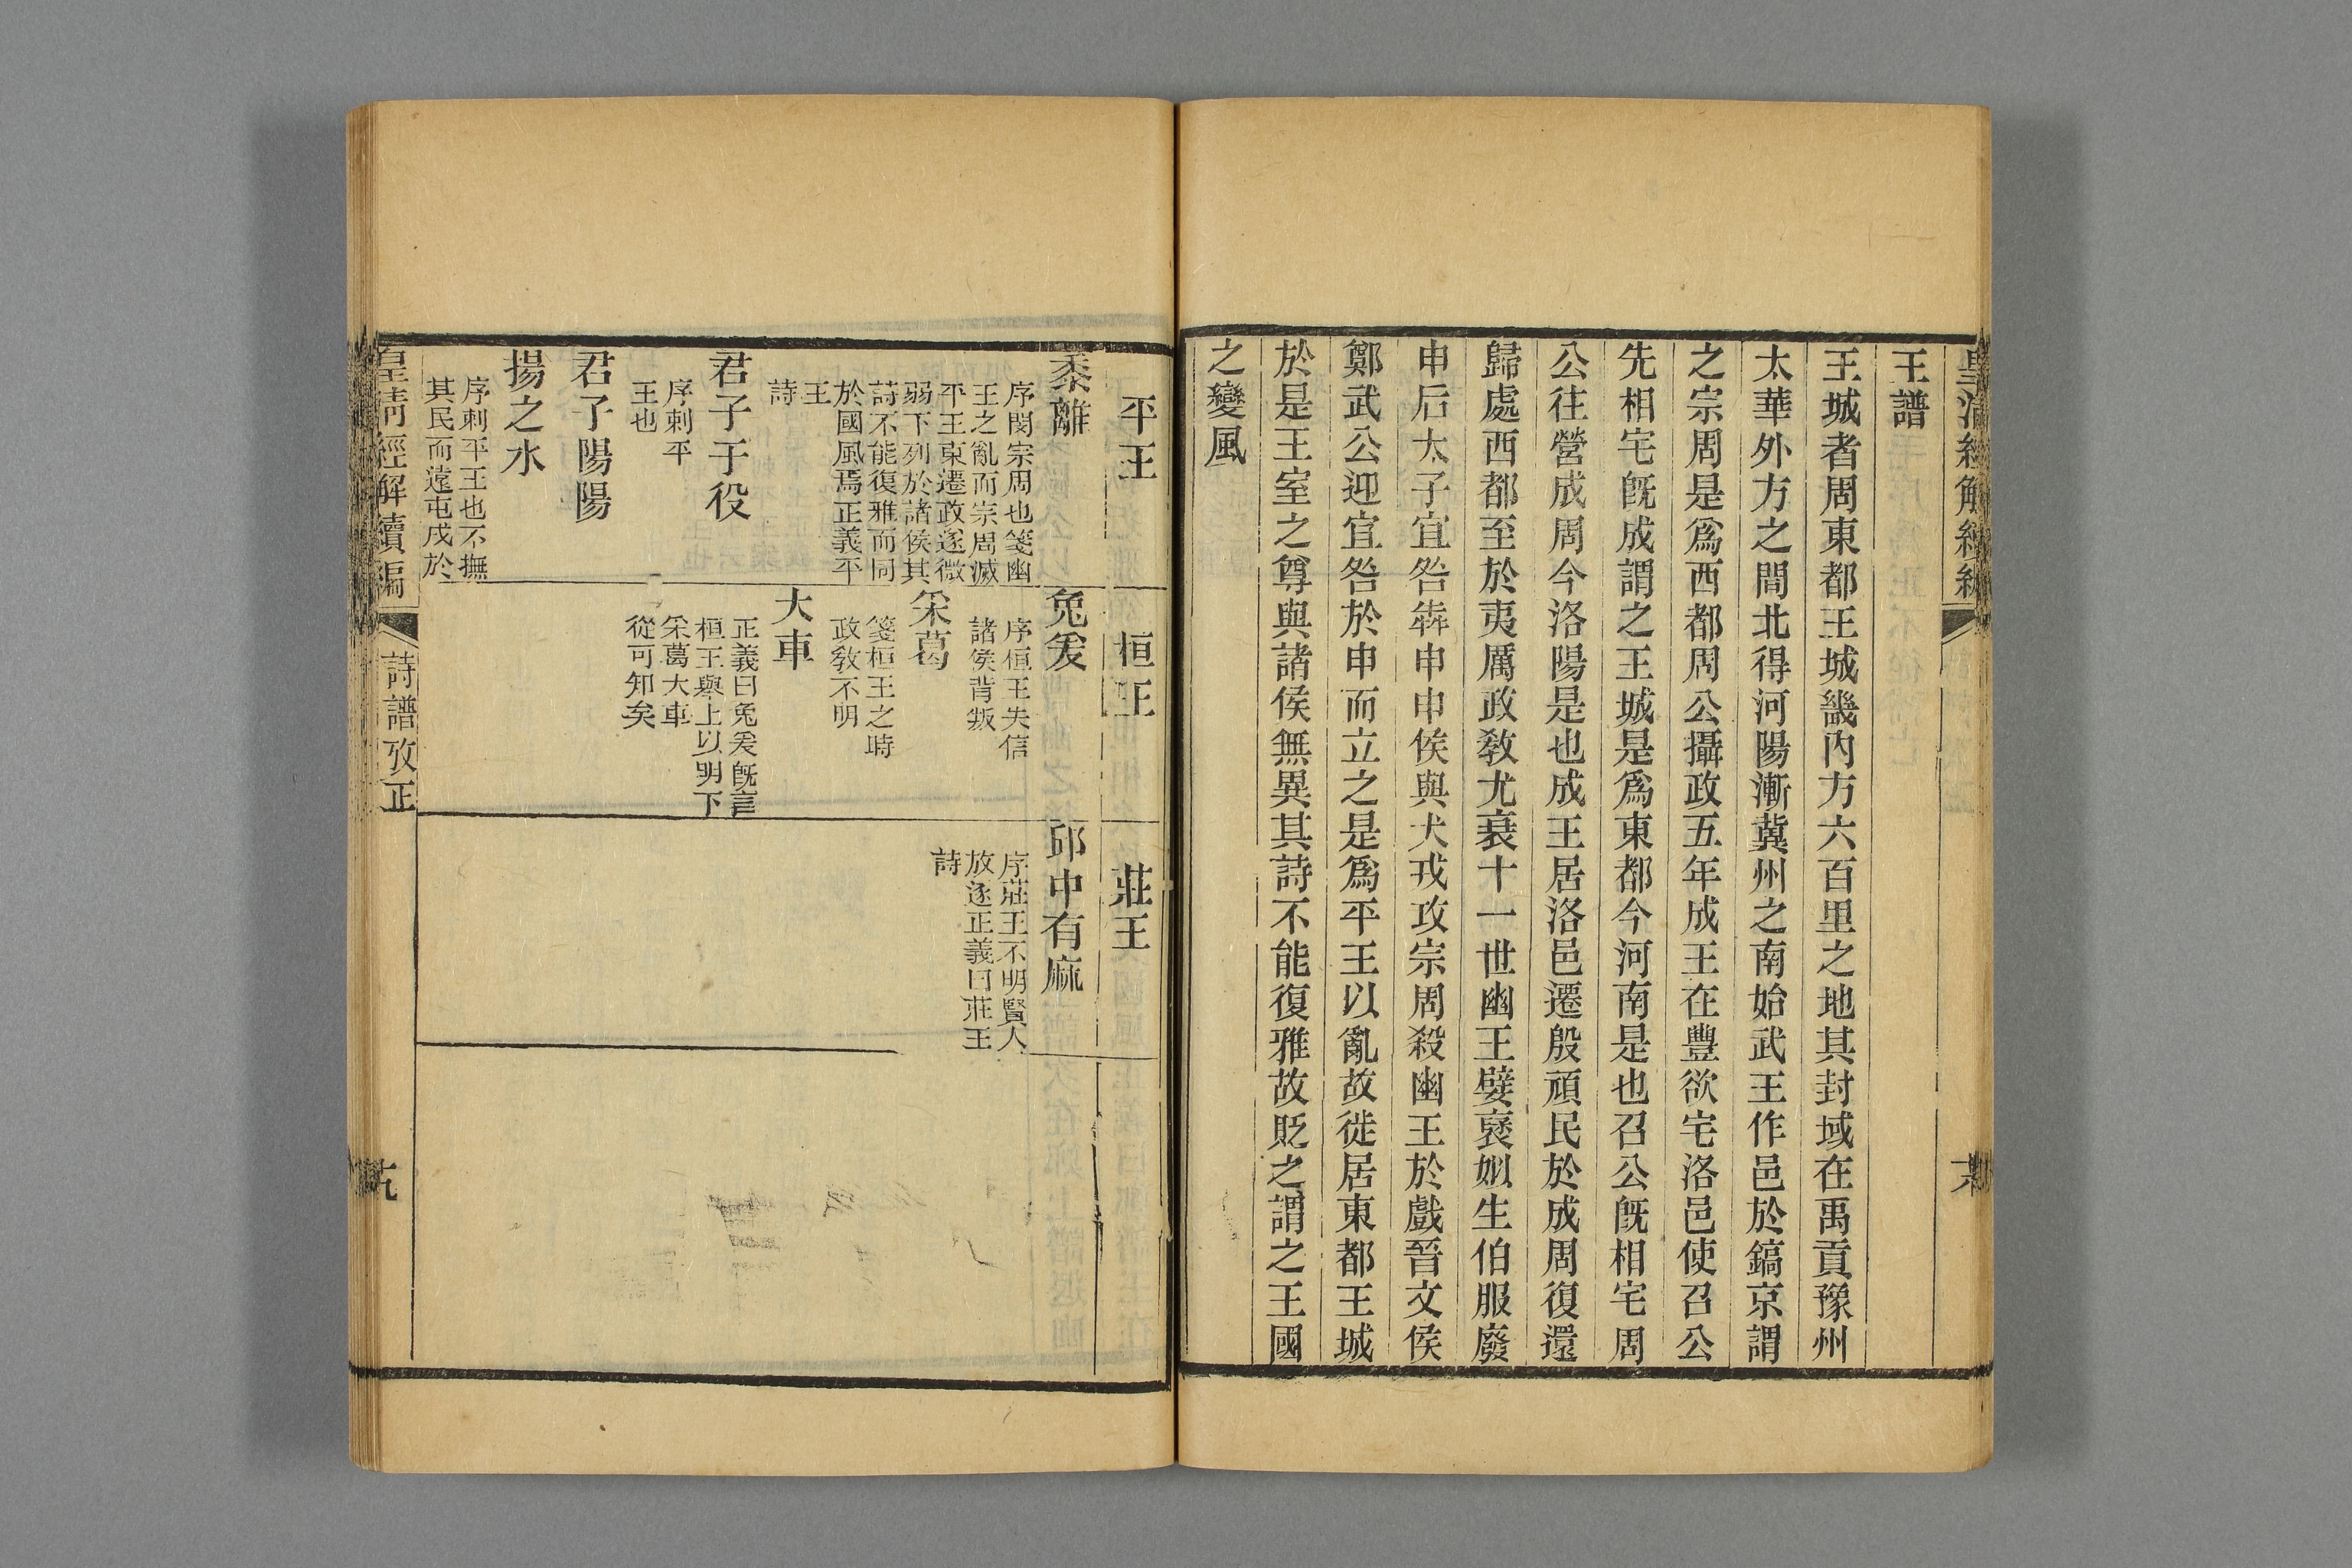 王譜
王城者周東都王城畿內方六百里之地其封域在禹貢豫州
太華外方之間北得河陽漸冀州之南始武王作邑於鎬京謂
之宗周是爲西都周公攝政五年成王在豐欲宅洛邑使召公
先相宅旣成謂之王城是爲東都今河南是也召公旣相宅周
公往營成周今洛陽是也成王居洛邑遷殷頑民於成周復還
歸處西都至於夷厲政敎尤衰十一世幽王嬖襃姒生伯服廢
申后太子宜咎犇申申侯與犬戎攻宗周殺幽王於戲晉文侯
鄭武公迎宜咎於申而立之是爲平王以亂故徙居東都王城
於是王室之尊與諸侯無異其詩不能復雅故貶之謂之王國
之變風
平王
黍離
序閔宗周也箋幽
王之亂而宗周滅
平王東遷政遂微
弱下列於諸侯其
詩不能復雅而同
於國風焉正義平
王
詩
君子于役
序刺平
王也
君子陽陽
揚之水
序刺平王也不撫
其民而遠屯戍於
桓王
兔爰
序桓王失信
諸侯背叛
采葛
箋桓王之時
政敎不明
大車
正義曰兔爰旣言
桓王舉上以明下
采葛大車
從可知矣
莊王
邱中有麻
序莊王不明賢人
放逐正義曰莊王
詩
皇清經解續編
詩譜攷正